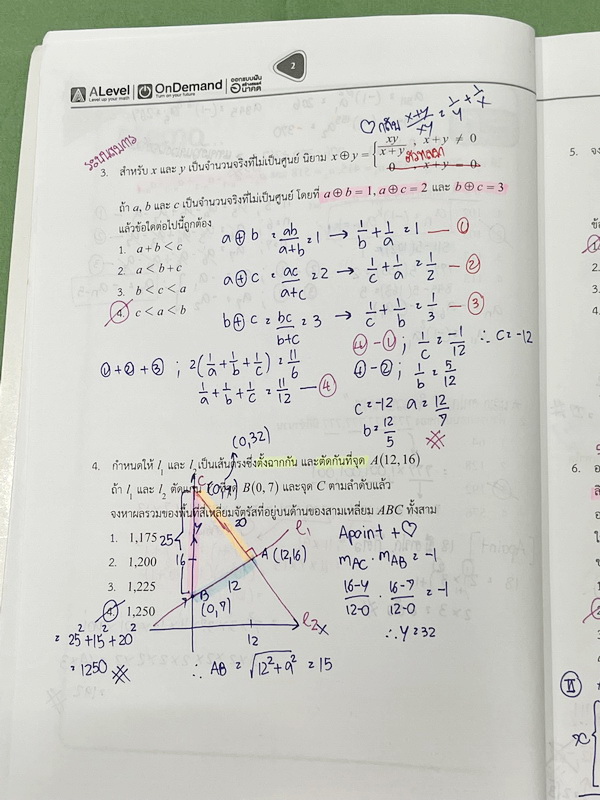 2
ALevel OnDemand ออกแบบฝัน สร้างสรรค์ อนาคต
Level up your math Turn on your future
♡ กลับ x+y/xy = 1/y + 1/x
ระบบสมการ
3. สำหรับ x และ y เป็นจำนวนจริงที่ไม่เป็นศูนย์ นิยาม x ⊕ y = { xy/x+y , x+y ≠ 0
0 , x+y = 0
ถ้า a, b และ c เป็นจำนวนจริงที่ไม่เป็นศูนย์ โดยที่ a ⊕ b = 1, a ⊕ c = 2 และ b ⊕ c = 3
แล้วข้อใดต่อไปนี้ถูกต้อง
1. a + b < c
2. a < b + c
3. b < c < a
4. c < a < b
a⊕b = ab/a+b = 1 → 1/b + 1/a = 1 — ①
a⊕c = ac/a+c = 2 → 1/c + 1/a = 1/2 — ②
b⊕c = bc/b+c = 3 → 1/c + 1/b = 1/3 — ③
①+②+③ ; 2(1/a + 1/b + 1/c) = 11/6
1/a + 1/b + 1/c = 11/12 — ④
④-① ; 1/c = -1/12 ∴ c = -12
④-② ; 1/b = 5/12
c = -12 a = 12/7
b = 12/5
4. กำหนดให้ l₁ และ l เป็นเส้นตรงซึ่งตั้งฉากกัน และตัดกันที่จุด A(12,16)
ถ้า l₁ และ l₂ ตัดแกน B(0, 7) และจุด C ตามลำดับแล้ว
จงหาผลรวมของพื้นที่สี่เหลี่ยมจัตุรัสที่อยู่บนด้านของสามเหลี่ยม ABC ทั้งสาม
1. 1,175
2. 1,200
3. 1,225
4. 1,250
(0,32)
C (0,y)
Y
25
20
l₁
16
A (12,16)
12
7
B
(0,7)
l₂
X
12
A point + ♡
mAC · mAB = -1
16-y/12-0 · 16-7/12-0 = -1
∴ y = 32
= 25² + 15² + 20²
= 1250
∴ AB = √12²+9² = 15
5. จง
ข้
1.
2.
3.
4.
6.
II
x